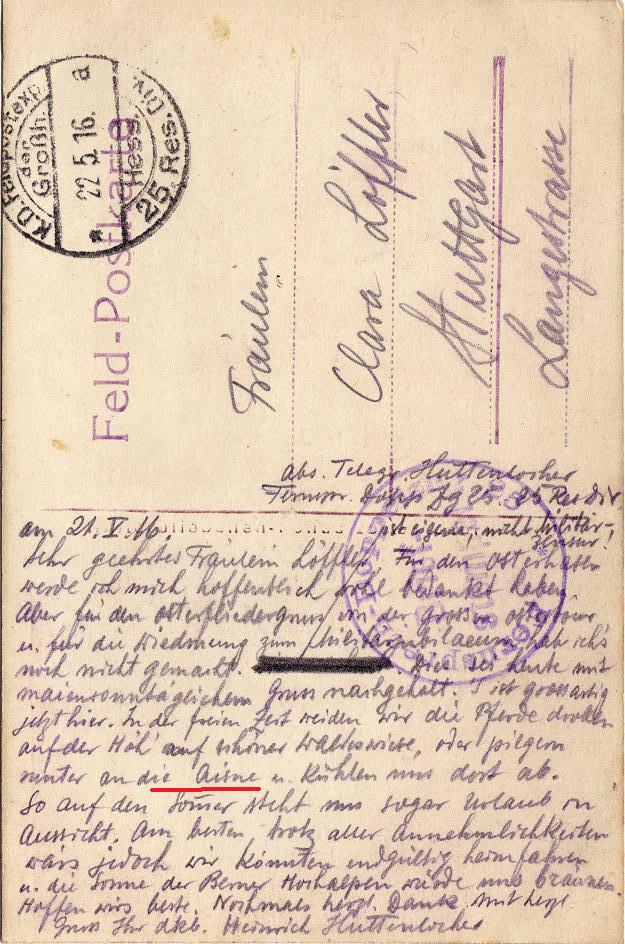 K.D. Feldpostexp.
der
Großh.
22.5.16. a
Hess.
25. Res. Div.
*
Feld-Postkarte
Fräulein
Clara Löffler
Stuttgart
Langestrasse
Abs. Telegr. Huttenlocher
Zg 25. 25 Res Div.
eigene, nicht Militär-
zensur!
am 21. V. 16.
Sehr geehrtes Fräulein Löffler, Für den Osterhasen
werde ich mich hoffentlich wohl bedankt haben
Aber für den Osterfliedergruss von der grossen
u. für die Widmung zum hab ich's
noch nicht gemacht. Dies sei heute mit
maiensonntäglichem Gruss nachgeholt. S' ist grossartig
jetzt hier. In der freien Zeit weiden wir die Pferde droben
auf der Höh' auf schöner Waldeswiese, oder pilgern
runter an die Aisne u. kühlen uns dort ab.
So auf den Sommer steht uns sogar Urlaub in
Aussicht. Am besten, trotz aller Annehmlichkeiten
wärs jedoch wir könnten endgültig heimfahren
u. die Sonne der Berner Hochalpen würde uns bräunen.
Hoffen wirs beste. Nochmals herzl. Dank mit herzl
Gruss Ihr dkb. Heinrich Huttenlocher